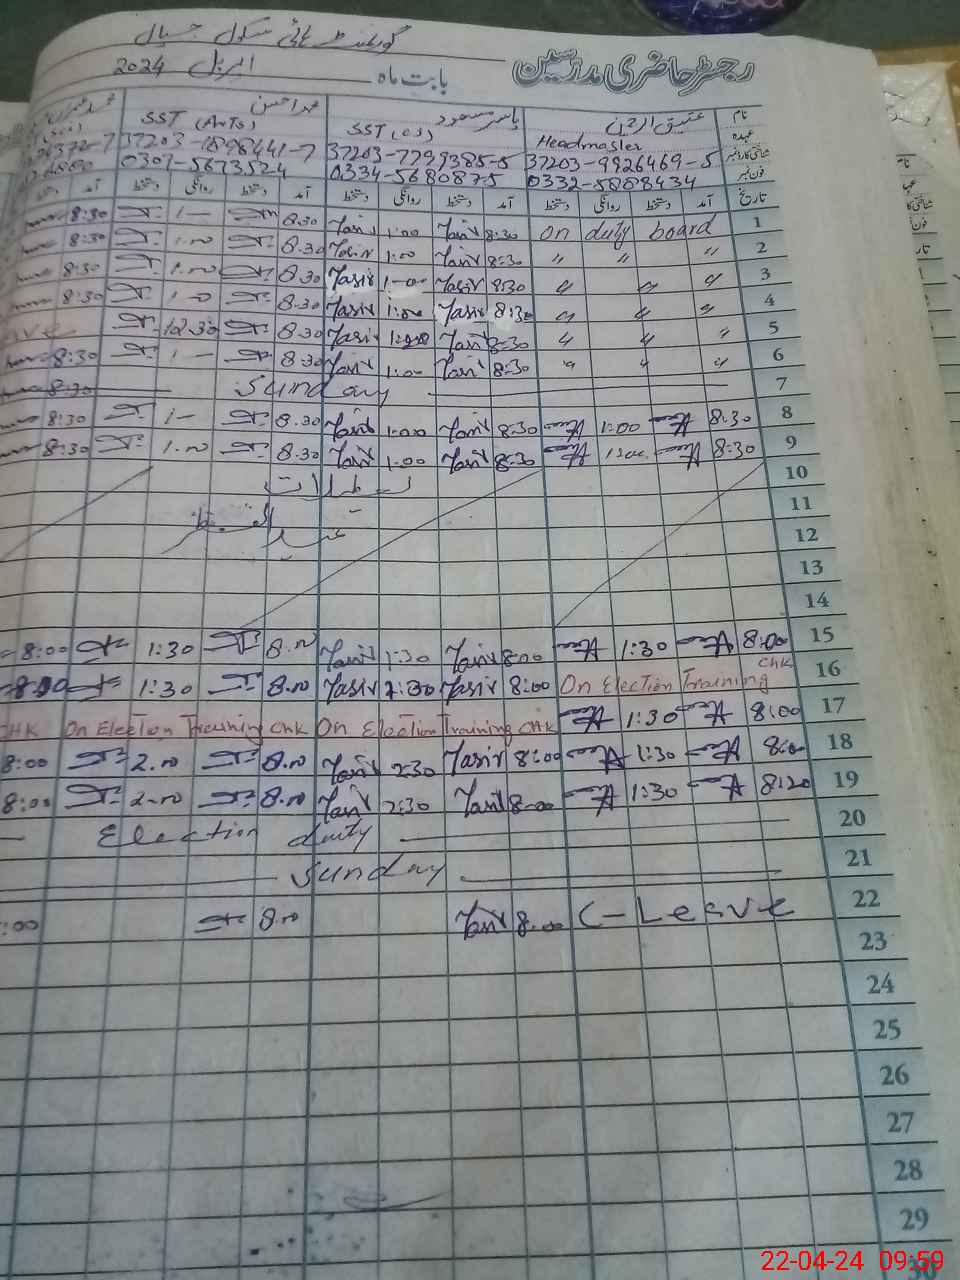 گورنمنٹ ہائی سکول جبال
رجسٹر حاضری مدرسین بابت ماہ اپریل 2024
نام عتیق الرحمن یاسر مسعود محمد احسن
عہدہ Headmaster SST (CS) SST (Arts)
شناختی کارڈ نمبر 37203-9926469-5 37203-7799385-5 37203-1898441-7
فون نمبر 0332-5888434 0334-5680875 0301-5673524
تاریخ آمد دستخط روانگی دستخط آمد دستخط روانگی دستخط آمد دستخط روانگی دستخط آمد
1 On duty board 8:30 Yasir 1:00 Yasir 8.30 1- 8:30
2 " " " 8:30 Yasir 1:00 Yasir 8.30 1.00 8:30
3 " " " 8:30 Yasir 1:00 Yasir 8.30 1.00 8:30
4 " " " 8:30 Yasir 1:00 Yasir 8.30 1-0 8:30
5 " " " 8:30 Yasir 1:00 Yasir 8.30 12.30
6 " " " 8:30 Yasir 1:00 Yasir 8.30 1- 8:30
7 Sunday 8:30
8 8:30 1:00 8:30 Yasir 1:00 Yasir 8.30 1- 8:30
9 8:30 1:00 8:30 Yasir 1:00 Yasir 8.30 1.00 8:30
10 تعطیلات
11 عید الفطر
12
13
14
15 8:00 1:30 8:00 Yasir 1:30 Yasir 8.00 1:30 8:00
16 On Election Training CHK 8:00 Yasir 1:30 Yasir 8.00 1:30 8:00
17 8:00 1:30 On Election Training CHK On Election Training CHK CHK
18 8:00 1:30 8:00 Yasir 2:30 Yasir 8.00 2.00 8:00
19 8:20 1:30 8:00 Yasir 2:30 Yasir 8.00 2.00 8:00
20 Election duty
21 Sunday
22 C-Leave 8:00 Yasir 8.00 :00
23
24
25
26
27
28
29
22-04-24 09:59